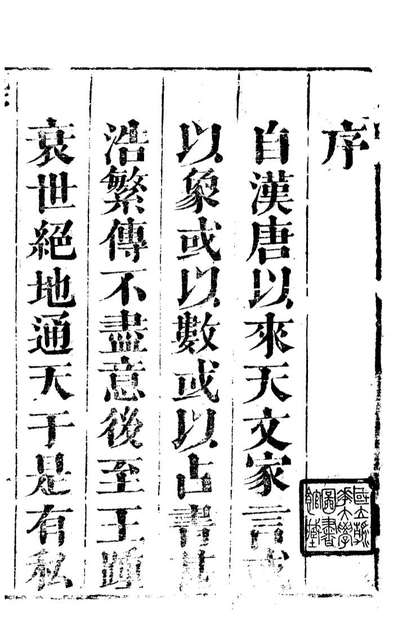 序
自漢唐以來天文家言或
以象或以數或以占書
浩繁傳不盡意後至王
衰世絕地通天于是有私
國立
大學
圖書
館藏